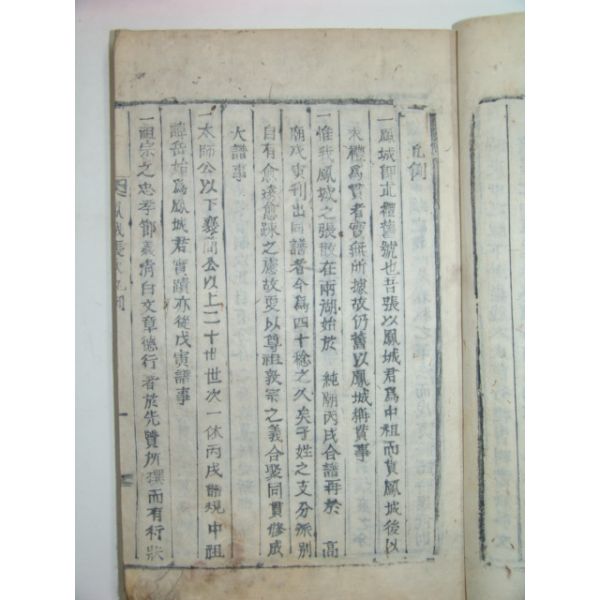 凡例
一鳳城卽求禮舊號也吾張以鳳城君爲中祖而貫鳳城後以
求禮爲貫者實無所據故仍舊以鳳城稱貫事
一惟我鳳城之張散在兩湖始於 純廟丙戌合譜再於 高
廟戊寅刊出同譜者今爲四十稔之久矣子姓之支分派別
自有愈遠愈踈之慮故更以尊祖敦宗之義合聚同貫修成
大譜事
一太師公以下襄間公以上二十世世次一依丙戌譜規中祖
諱岳始爲鳳城君實蹟亦從戊寅譜事
一祖宗之忠孝節義淸白文章德行者於先賢所撰而有行狀
鳳城張氏凡例